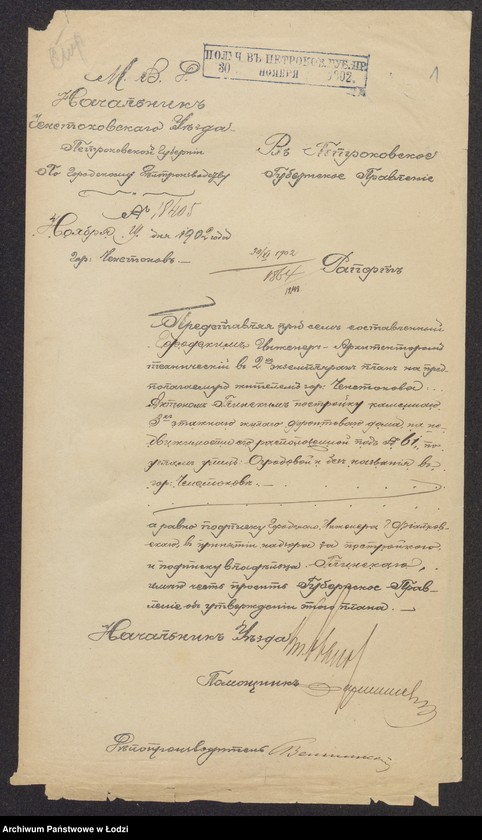 ПОЛУЧ. ВЪ ПЕТРОКОВ. ГУБ. ПР.
30 НОЯБРЯ 1902.
1
М. В. Д.
Начальникъ
Ченстоховскаго Уѣзда
Петроковской Губерніи
По Городскому
Въ Петроковское
Губернское Правленіе
№ 18405
Ноября дня 1902 года
гор. Ченстоховъ
30/XI 1902
1864
Рапортъ
Представляя при семъ составленный
Городскимъ Инженеръ-Архитекторомъ
техническій въ 2хъ экземплярахъ планъ на пред-
полагаемую жителемъ гор. Ченстохова
Антономъ Глинскимъ постройку каменнаго
3хъ этажнаго жилого фронтоваго дома, на не-
движимости его расположенной подъ № 61, по
улицамъ Огродовой и безъ названія въ
гор. Ченстоховѣ.
а равно подписку Городского Инженера
въ принятіи надзора за постройкою
и подписку владѣльца Глинскаго,
имѣю честь просить Губернское Прав-
леніе объ утвержденіи этого плана.
Начальникъ Уѣзда
Помощникъ
Дѣлопроизводитель
Archiwum Państwowe w Łodzi